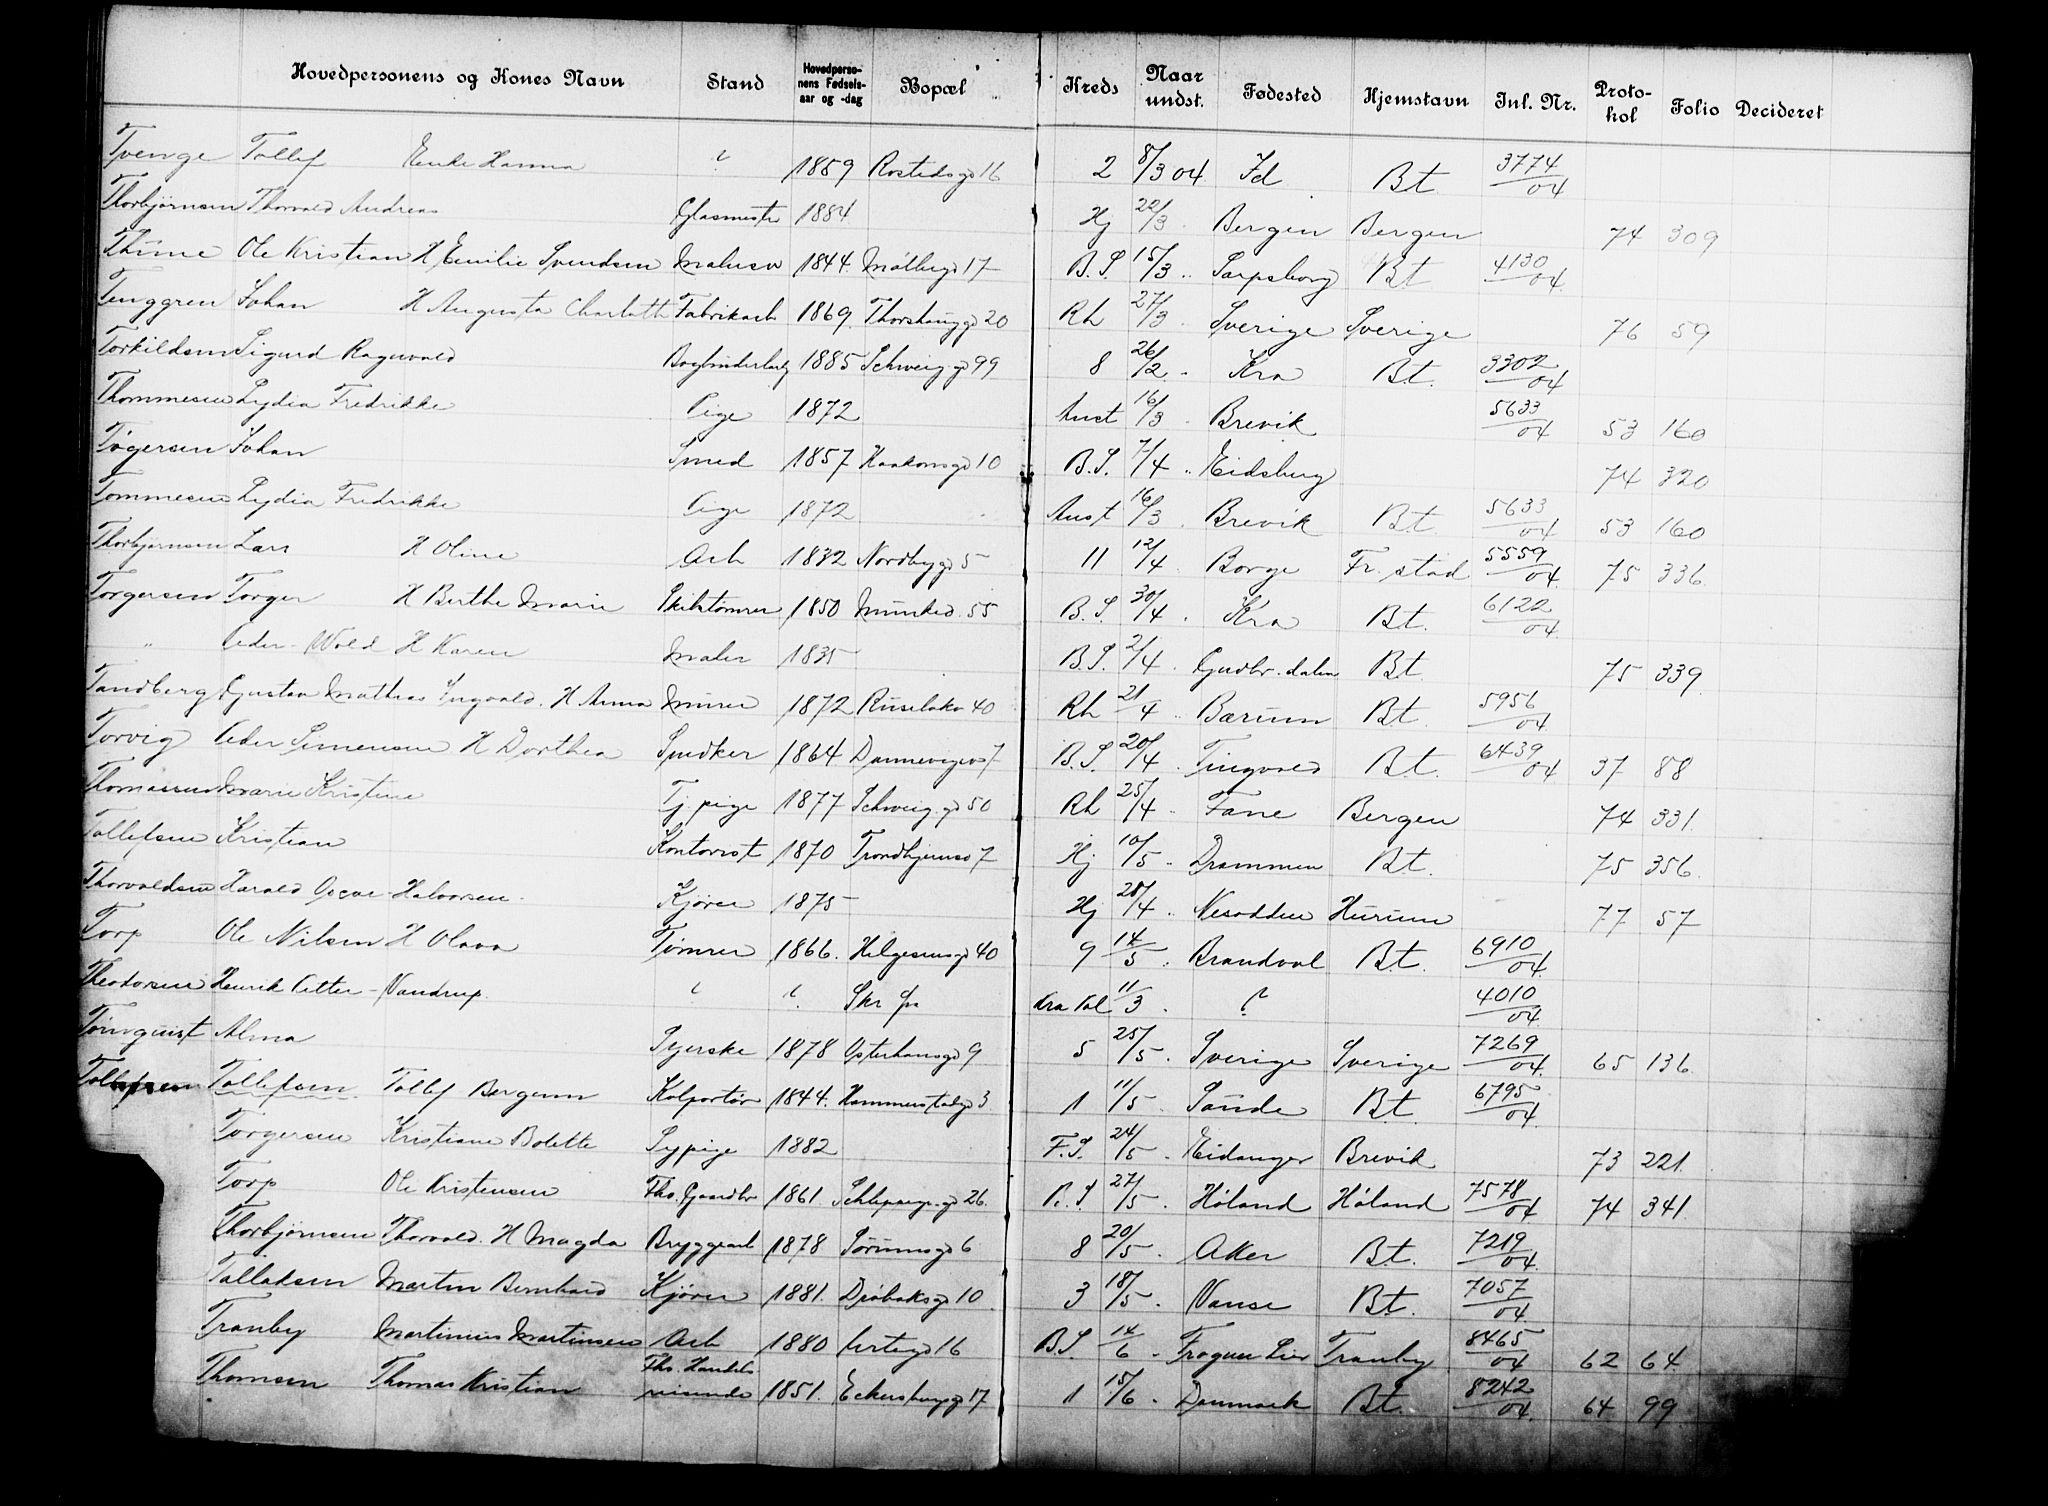 Hovedpersonens og Kones Navn Stand Hovedpersonens Fødselsaar og -dag Bopæl Kreds Naar undst. Fødested Hjemstavn Inl. Nr. Protokol Folio Decideret
Tvenge Tollef Enke Hanna ? 1889 Rostedsgd 16 2 8/3 04 Id Bt. 3774/04
Thorbjørnsen Thorvald Andreas Glasmester 1884 Hj 22/3 Bergen Bergen 74 309
Thime Ole Kristian H Emilie Svendsen 1844 17 B.S. 15/3 " Sarpsborg Bt 4130/04
Tenggren Johan H Augusta Charlotte Fabrikarb 1869 Thorshauggd 20 Rh 27/3 Sverige Sverige 76 59
Torkildsen Sigurd Ragnvald 1885 Schweiggd 99 8 26/2 - Kra Bt. 3302/04
Thommesen Lydia Fredrikke Pige 1872 Aust 16/3 . Brevik 5633/04 53 160
Tøgersen Johan Smed 1857 Haakonsgd 10 B.S. 7/4 " Eidsberg 74 320
Tommesen Lydia Fredrikke Pige 1872 Aust 16/3 . Brevik Bt 5633/04 53 160
Thorbjørnsen Lars H Oline Arb 1832 Nordbygd 5 11 12/4 . Borge Fr. stad 5559/04 75 336
Torgersen Torger H Berthe Marie Skibstømrer 1850 Munked. 55 B.S. 30/4 . Kra Bt. 6122/04
" Peder - Wold H Karen Maler 1835 B.S. 2/4 . Gudbr. dalen Bt 75 339
Tandberg Gustav Mathias Ingvald. H Anna Murer 1872 Ruseløkv 40 Rh 21/4 " Bærum Bt. 5956/04
Torvig Peder Simensen H Dorthea Snedker 1864 Dannevigsv 7 B.S. 20/4 . Tingvold Bt. 6439/04 37 88
Thomassen Marie Kristine Tj. pige 1877 Schweiggd 50 Rh 25/4 - Fane Bergen 74 331
Tollefsen Kristian Kontorist 1870 Trondhjemsv 7 Hj 10/5 - Drammen Bt. 75 356
Thorvaldsen Harald Oscar Halvorsen Kjører 1875 Hj 28/4 " Nesodden Hurum 77 57
Torp Ole Nilsen H Olava Tømrer 1866. Helgesensgd 40 9 14/5 . Brandval Bt. 6910/04
Theodorsen Henrik Petter - Vandrup ? ? Kra Pol 11/3 . ? 4010/04
Tørnquist Alma Syerske 1878 Osterhausgd 9 5 25/5 . Sverige Sverige 7269/04 65 136
Tollefsen Tollefsen Tollef Bergum Kolportør 1844. Hammerstadgd 3 1 11/5 . Sande Bt 6795/04
Torgersen Kristiane Bolette Sypige 1882 F.S. 24/5 - Eidanger Brevik 73 221
Torp Ole Kristensen Fhv. Gaardbr 1861. 26. B.S 27/5 . Høland Høland 7578/04 74 341
Thorbjørnsen Thorvald. H Magda Bryggearb 1878 Sørumsgd 6 8 20/5 . Aker Bt. 7219/04
Tallaksen Martin Bernhard Kjører 1881. Drøbaksgd 10 3 18/5 . Vanse Bt. 7057/04
Tranby Martinius Martinsen Arb 1880 Urtegd 16 B.S 14/6 - Frogner Lier Tranby 8465/04 62 64
Thomsen Thomas Kristian Fhv. Handelsreisende 1851. Eckersbergsgd 17 1 15/6 - Danmark Bt. 8242/04 64 99